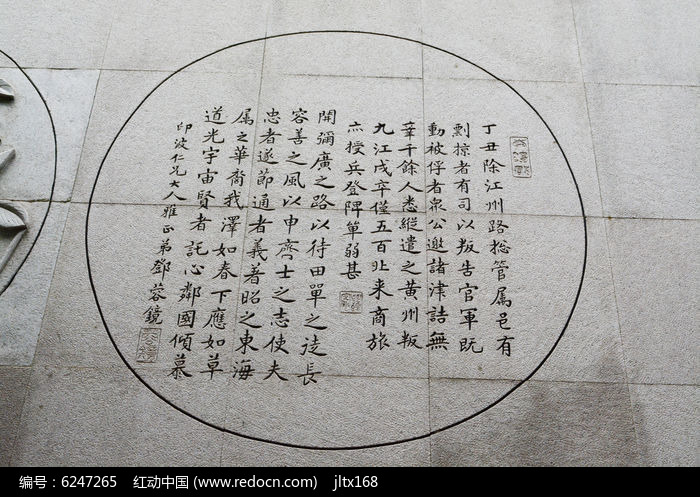 丁丑除江州路捴管属邑有
剽掠者有司以叛告官軍既
動被俘者衆公邀諸津詰無
辜千餘人悉縱遣之黄州叛
九江戍卒僅五百北来商旅
亦授兵登陴單弱甚
開彌廣之路以待田單之徒長
容善之風以申齊士之志使夫
忠者遂節通者義著昭之東海
属之華裔我澤如春下應如草
道光宇宙賢者託心鄰國傾慕
印波仁兄大人雅正弟鄧蓉鏡
编号：6247265 红动中国 (www.redocn.com) jltx168